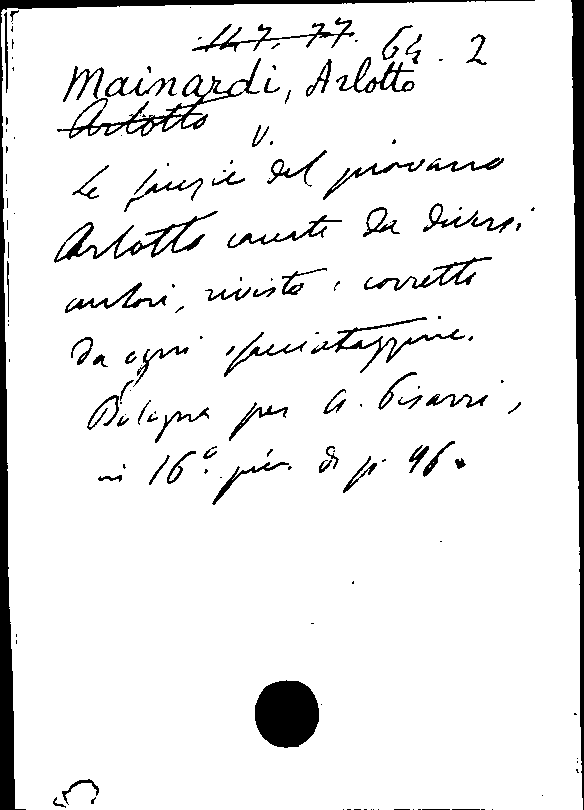 117. 77. 64. 2
Mainardi, Arlotto
Arlotto
V.
Le facezie del piovano
Arlotto cavate da diversi
autori, riviste e corrette
da ogni spacciataggine.
Bologna per A. Pisarri,
in 16.° picc. di p. 96.